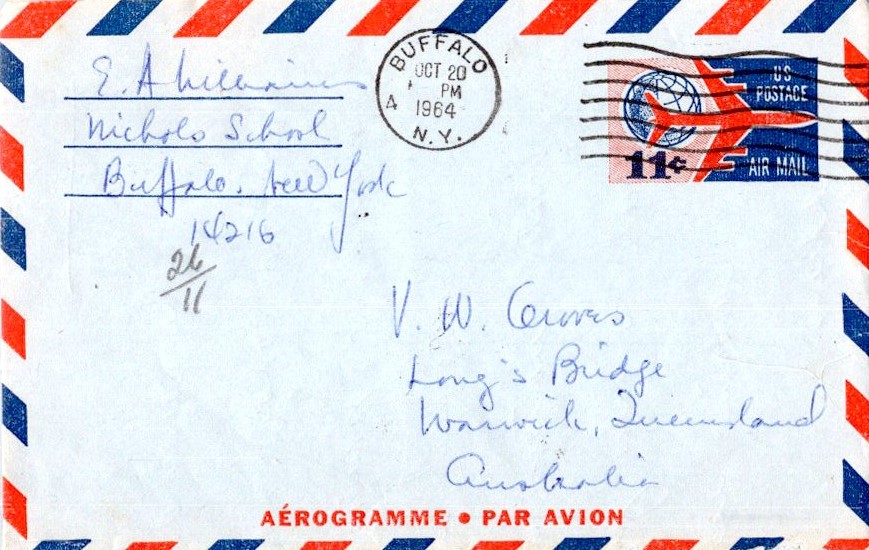 E. A Williams
Nichols School
Buffalo, New York
14216
26/11
BUFFALO
OCT 20
PM
4
1964
N.Y.
US
POSTAGE
11¢
AIR MAIL
V. W. Groves
Long's Bridge
Warwick, Queensland
Australia
AÉROGRAMME • PAR AVION